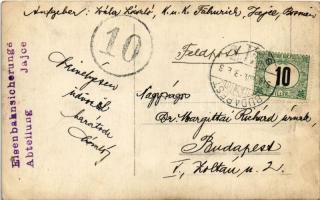 Aufgeber: Zóla László, K.u.K. Fähnrich, Jajce, Bosnien
Eisenbahnsicherungs
Abteilung Jajce
10
Feldpost
BUDAPEST
10
Szívélyesen
üdvözöl
barátod
László
Nagyságos
Dr. Margittai Richárd úrnak,
Budapest
V., Zoltán u. 2.